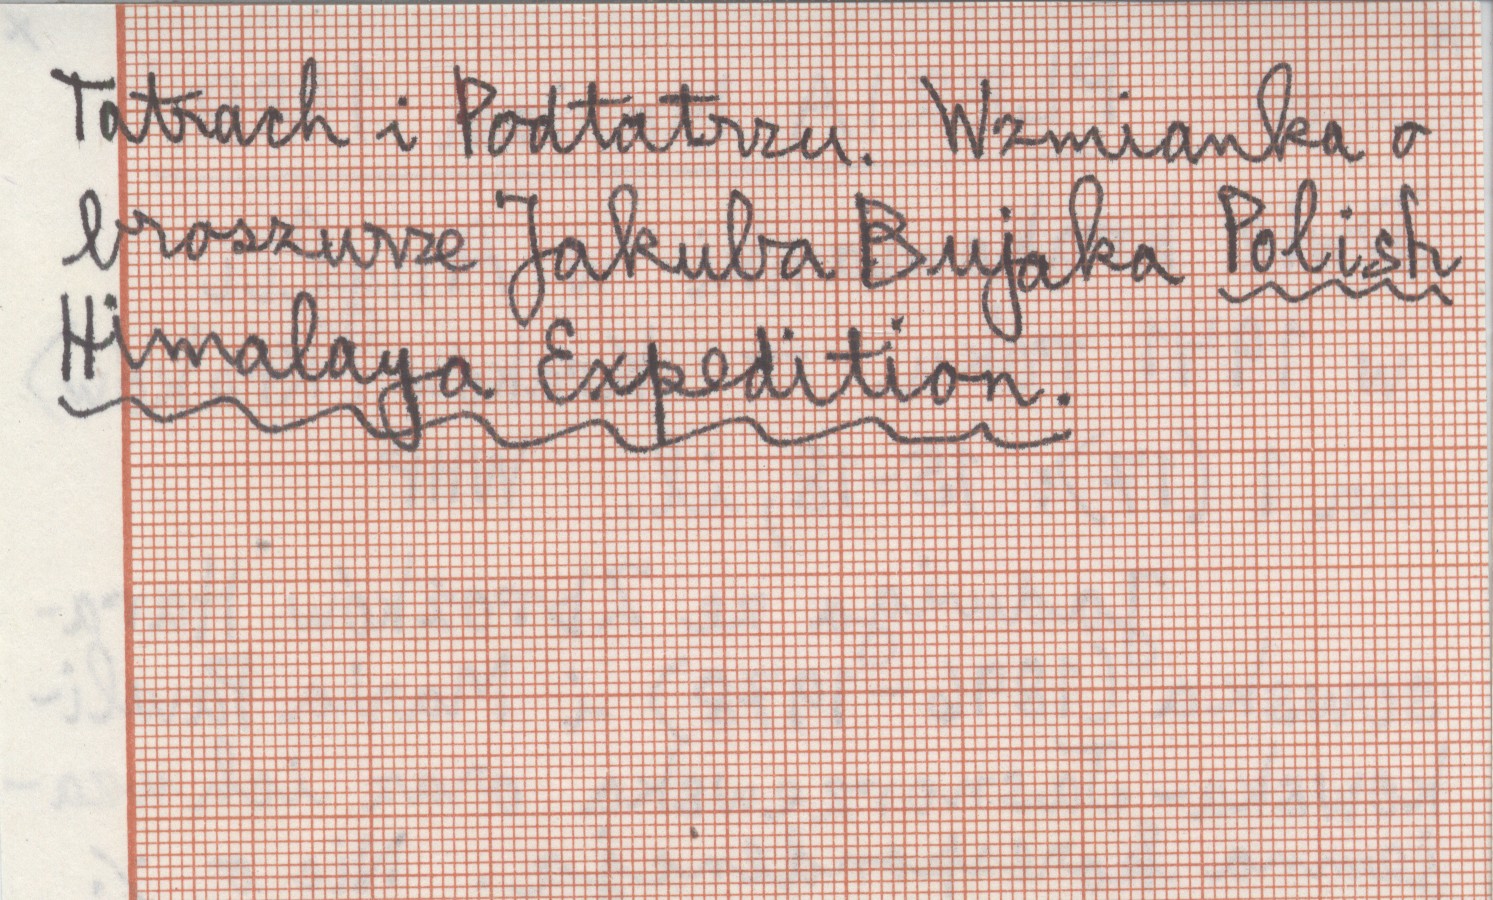 Tatrach i Podtatrzu. Wzmianka o
broszurze Jakuba Bujaka Polish
Himalaya Expedition.